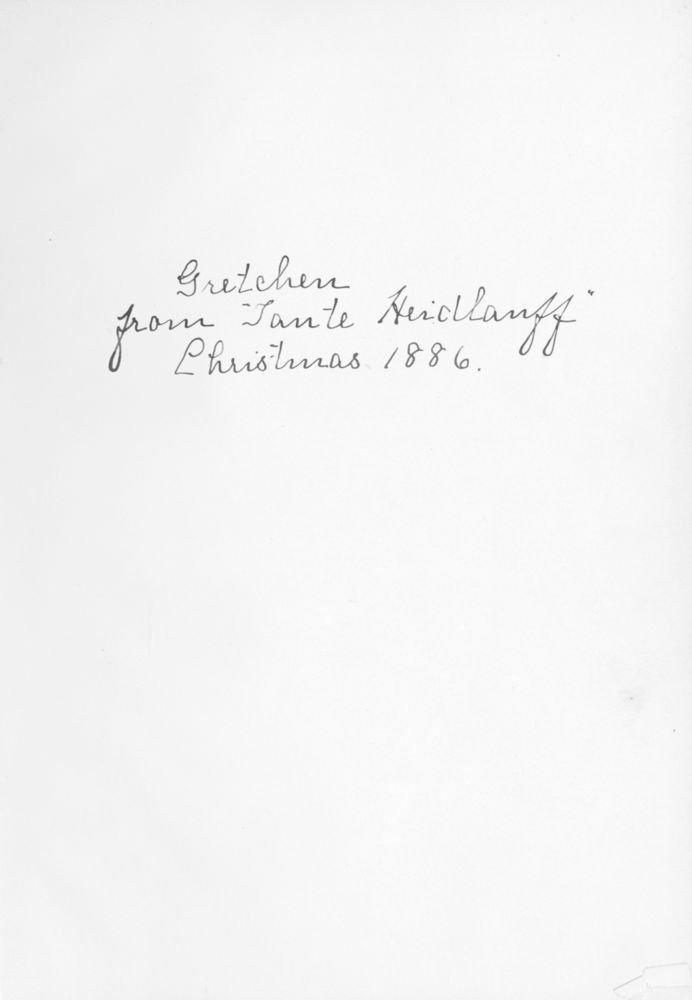 Gretchen
from "Tante Heidlauff"
Christmas 1886.